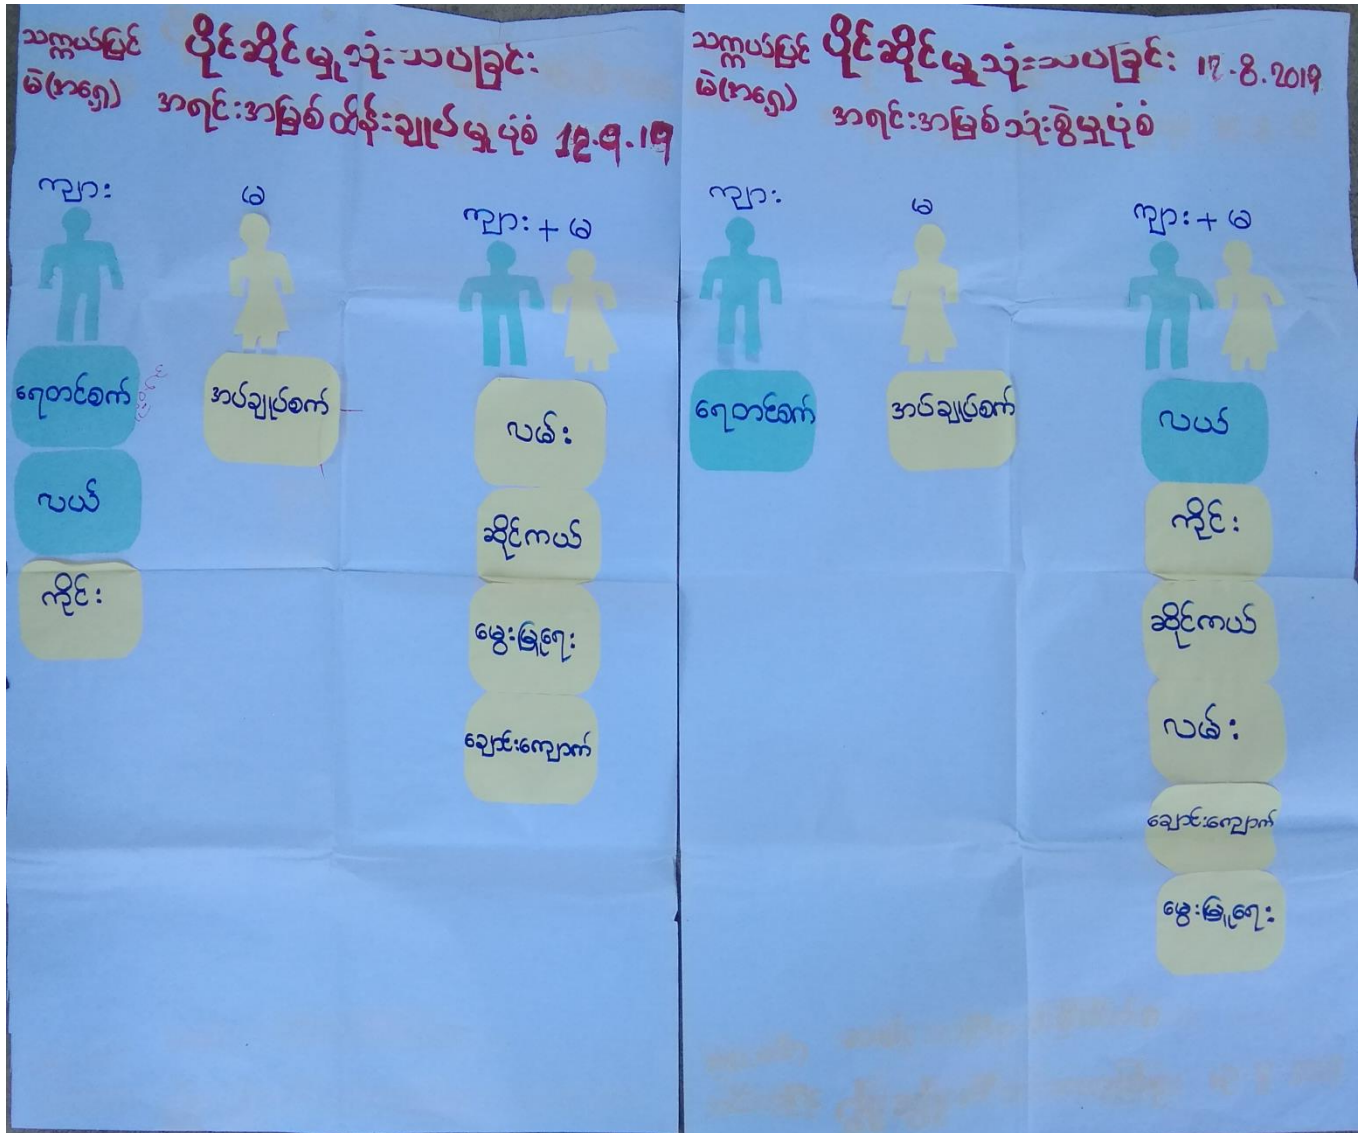 သက္ကယ်ပြင် ပိုင်ဆိုင်မှုသုံးသပ်ခြင်း
မဲ(အရှေ့) အရင်းအမြစ်ထိန်းချုပ်မှုပုံစံ
ကျား မ ကျား + မ
ရေတင်စက် အပ်ချုပ်စက် လမ်း
လယ် ဆိုင်ကယ်
ကိုင်း မွေးမြူရေး
ချောင်းကျောက်
သက္ကယ်ပြင် ပိုင်ဆိုင်မှုသုံးသပ်ခြင်း 12.8.2019
မဲ(အရှေ့) အရင်းအမြစ်သုံးစွဲမှုပုံစံ
ကျား မ ကျား + မ
ရေတင်စက် အပ်ချုပ်စက် လယ်
ကိုင်း
ဆိုင်ကယ်
လမ်း
ချောင်းကျောက်
မွေးမြူရေး